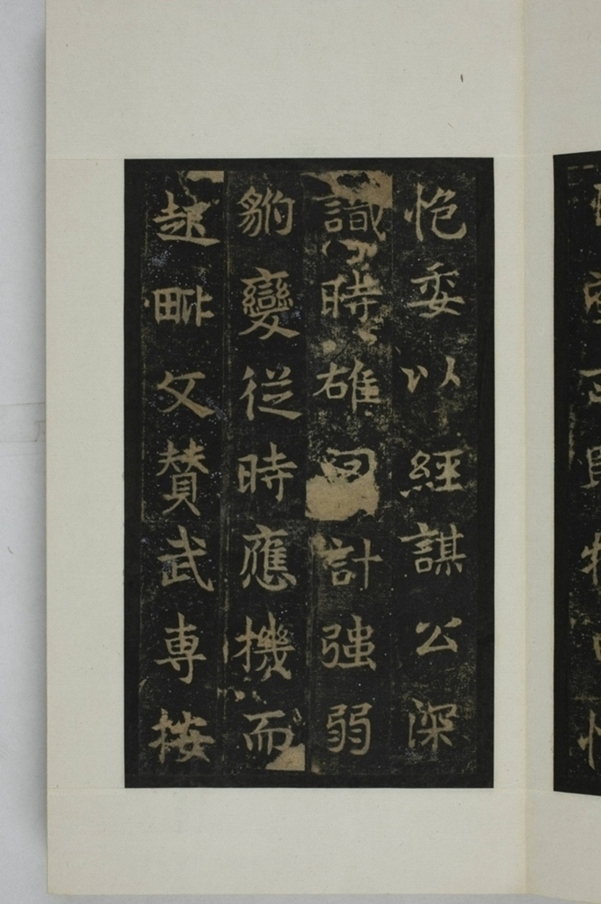 委以經謀公深
識時雄計強弱
豹變從時應機而
起毗文贊武專按